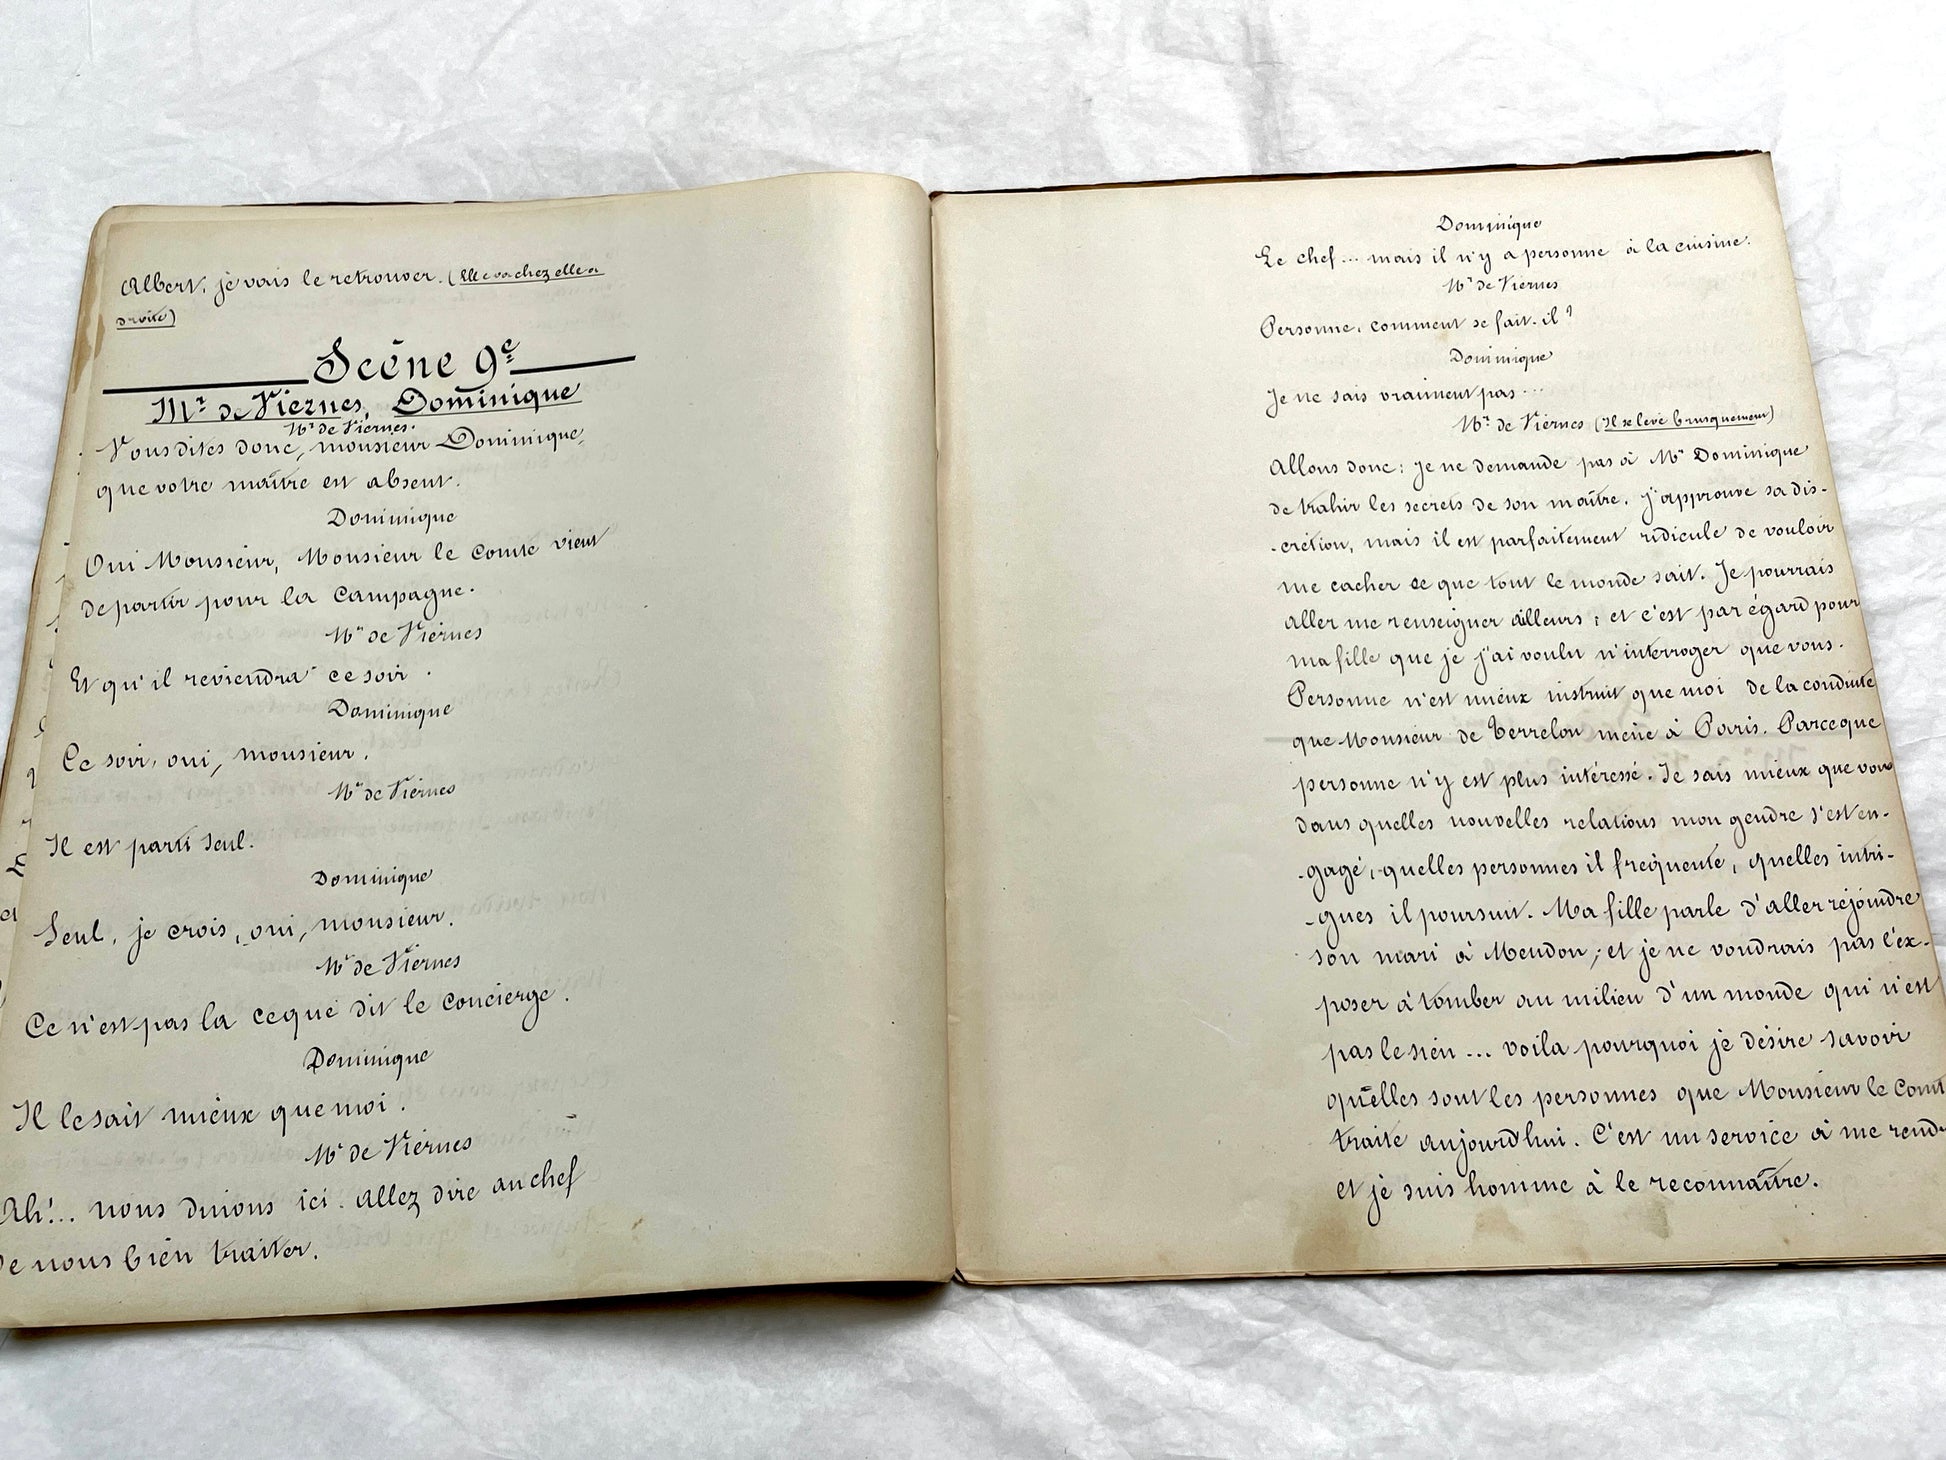 Albert, je vais le retrouver. (Elle va chez elle a
droite)
Scène 9e
Mr de Viernes, Dominique
Mr de Viernes.
Vous dites donc, monsieur Dominique,
que votre maître est absent.
Dominique
Oui Monsieur, Monsieur le comte vient
de partir pour la campagne.
Mr de Viernes
Et qu'il reviendra ce soir.
Dominique
Ce soir, oui, monsieur.
Mr de Viernes
Il est parti seul.
Dominique
Seul, je crois, oui, monsieur.
Mr de Viernes
Ce n'est pas la ce que dit le concierge.
Dominique
Il le sait mieux que moi.
Mr de Viernes
Ah!... nous dinons ici. Allez dire au chef
de nous bien traiter.
Dominique
Le chef... mais il n'y a personne à la cuisine.
Mr de Viernes
Personne, comment se fait-il?
Dominique
Je ne sais vraiment pas...
Mr de Viernes (Il se lève brusquement)
Allons donc: je ne demande pas à Mr Dominique
de trahir les secrets de son maître. j'approuve sa dis-
-crétion, mais il est parfaitement ridicule de vouloir
me cacher ce que tout le monde sait. Je pourrais
aller me renseigner ailleurs; et c'est par égard pour
ma fille que je j'ai voulu n'interroger que vous.
Personne n'est mieux instruit que moi de la conduite
que Monsieur de Terrelon mène à Paris. Parce que
personne n'y est plus intéressé. Je sais mieux que vous
dans quelles nouvelles relations mon gendre s'est en-
-gagé, quelles personnes il fréquente, quelles intri-
-gues il poursuit. Ma fille parle d'aller rejoindre
son mari à Meudon; et je ne voudrais pas l'ex-
poser à tomber au milieu d'un monde qui n'est
pas le sien... voila pourquoi je désire savoir
quelles sont les personnes que Monsieur le Comt
traite aujourd'hui. C'est un service à me rend
et je suis homme à le reconnaître.